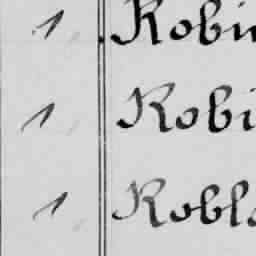 1 Robi
1 Robi
1 Robl